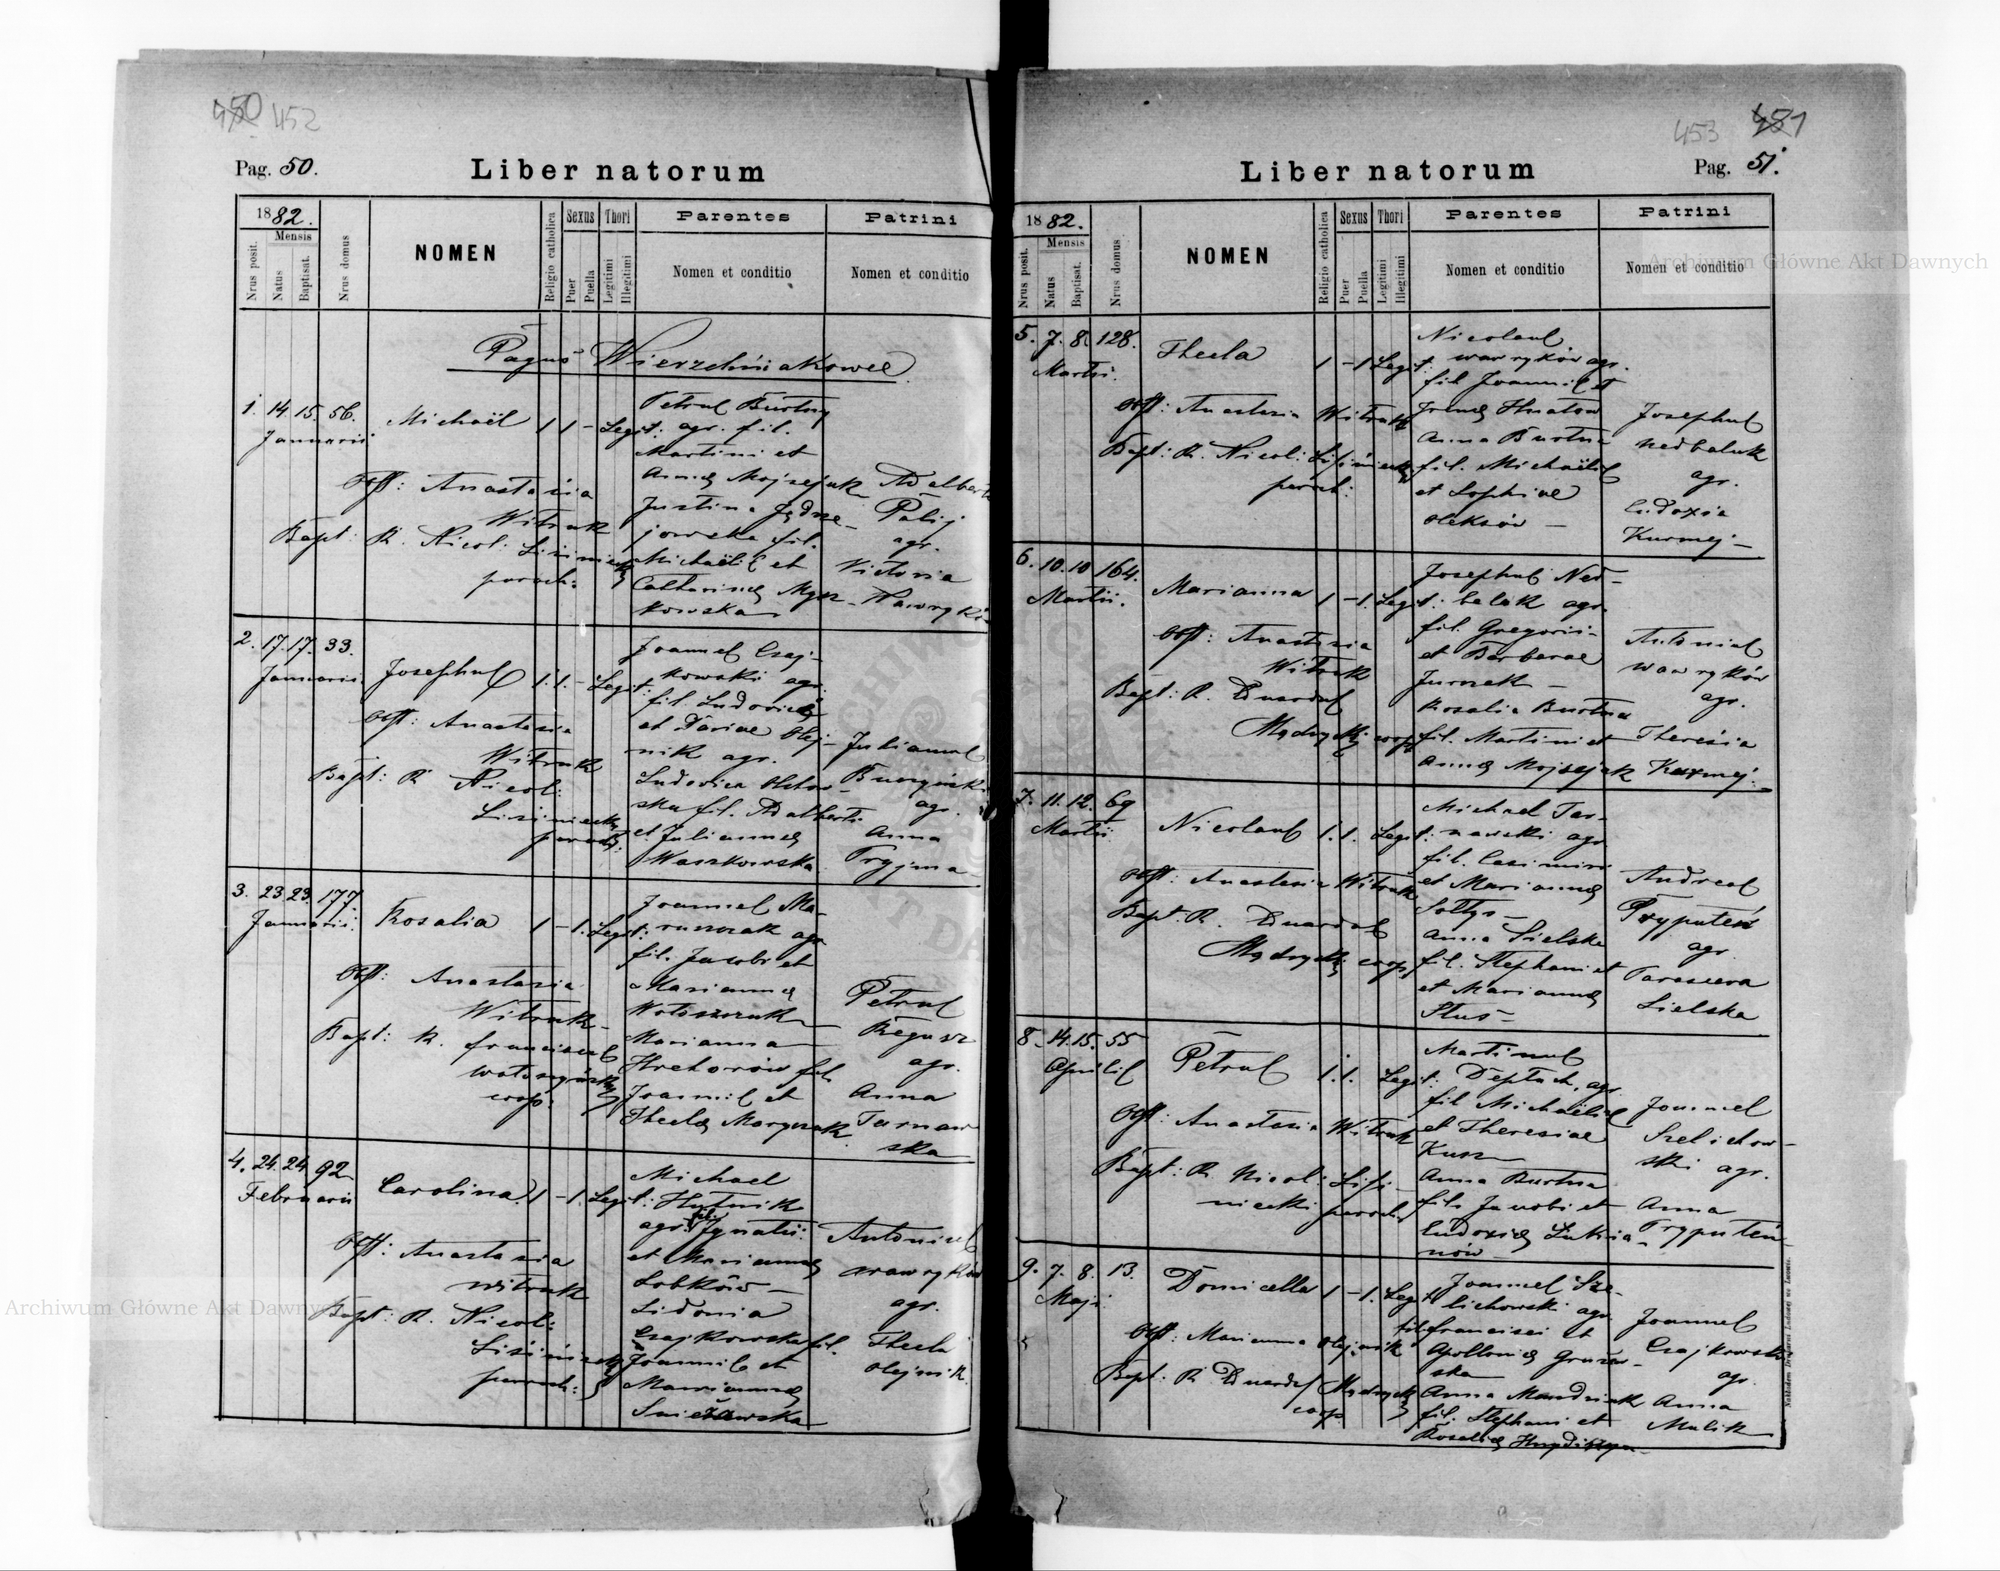 450 452
Pag. 50.
Liber natorum
1882.
Mensis
Nrus posit.
Natus
Baptisat.
Nrus domus
NOMEN
Religio catholica
Sexus
Puer
Puella
Thori
Legitimi
Illegitimi
Parentes
Nomen et conditio
Patrini
Nomen et conditio
Pagus Wierzchniakowce
1. 14. 15. 56.
Januarii
Michaël 1 1 - Legit:
Obst: Anastasia
Witruk
Bapt: R. Nicol: Lisiniecki
paroch:
Petrus Burtny
agr. fil.
Martini et
Annae Mojsejuk
Justina Jędrze-
jowska fil.
Michaëlis et
Catharinae Myn-
kowska
Adalbertus
Palij
agr.
Victoria
Wawryków
2. 17. 17. 33.
Januarii
Josephus 1. 1. - Legit:
Obst: Anastasia
Witruk
Bapt: R. Nicol:
Lisiniecki
paroch:
Joannes Czaj-
kowski agr.
fil. Ludovici
et Dariae Olej-
nik agr.
Ludovica Ostow-
ska fil. Adalberti
et Juliannae
Waszkowska
Julianus
agr.
Anna
Pryjma
3. 23. 23. 177.
Januarii
Rosalia 1 - 1. Legit:
Obst: Anastasia
Witruk
Bapt: R. Franciscus
coop:
Joannes Ma-
ruszczak agr.
fil. Jacobi et
Mariannae
Wotoszczuk
Marianna
Hrehorów fil.
Joannis et
Theclae Marynuk
Petrus
Regusz
agr.
Anna
Tarnaw-
ska
4. 24. 24. 92.
Februarii
Carolina 1 - 1. Legit:
Obst: Anastasia
Witruk
Bapt: R. Nicol:
Lisiniecki
paroch:
Michael
Hutnik
agr. fil. Ignatii
et Mariannae
Sobków
Sidonia
Czajkowska fil.
Joannis et
Mariannae
Śnieżawska
Antonius
Wawryków
agr.
Thecla
Olejnik.
453 451
Pag. 51.
Liber natorum
1882.
Mensis
Nrus posit.
Natus
Baptisat.
Nrus domus
NOMEN
Religio catholica
Sexus
Puer
Puella
Thori
Legitimi
Illegitimi
Parentes
Nomen et conditio
Patrini
Nomen et conditio
5. 7. 8. 128.
Martii.
Thecla 1 - 1 Legit:
Obst: Anastasia Witruk
Bapt: R. Nicol: Lisiniecki
paroch:
Nicolaus
Wawryków agr.
fil. Joannis et
Irenae Hnatów
Anna Burtna
fil. Michaëlis
et Sophiae
Oleksów
Josephus
Nedbaluk
agr.
Eudoxia
Kurmej
6. 10. 10 164.
Martii.
Marianna 1 - 1. Legit:
Obst: Anastasia
Witruk
Bapt: R. Eduardus
Mądrycki coop
Josephus Ned-
baluk agr.
fil. Gregorii
et Barbarae
Jurczak
Rosalia Burtna
fil. Martini et
Annae Mojsejuk
Antonius
Wawryków
agr.
Theresia
Kurmej.
7. 11. 12. 69
Martii
Nicolaus 1. 1. Legit:
Obst: Anastasia Witruk
Bapt. R. Eduardus
Mądrycki coop
Michael Tar-
nawski agr
fil. Casimiri
et Mariannae
Sołtys
Anna Sielska
fil. Stephani et
et Mariannae
Stus
Andreas
Pryputeń
agr.
Parascewa
Sielska
8. 14. 15. 55
Aprilis
Petrus 1. 1. Legit:
Obst: Anastasia Witruk
Bapt: R. Nicol: Lisi-
niecki paroch
Martinus
Deptuch, agr
fil Michaëlis
et Theresiae
Kusz
Anna Burtna
fil. Jacobi et
Eudoxiae Lukia-
nów
Joannes
Szelichow-
ski agr.
Anna
Pryputeń
9. 7. 8. 13.
Maji
Domicella 1 - 1. Legit
Obst: Marianna Olejnik
Bapt: R. Eduardus Mądrycki
coop
Joannes Sze-
lichowski agr
fil Francisci et
Apolloniae Gruszew-
ska
Anna Mandziuk
fil. Stephani et
Rosaliae
Joannes
Czajkowski
agr.
Anna
Malik
Nakładem Drukarni Ludowej we Lwowie.
Archiwum Główne Akt Dawnych
Archiwum Główne Akt Dawnych